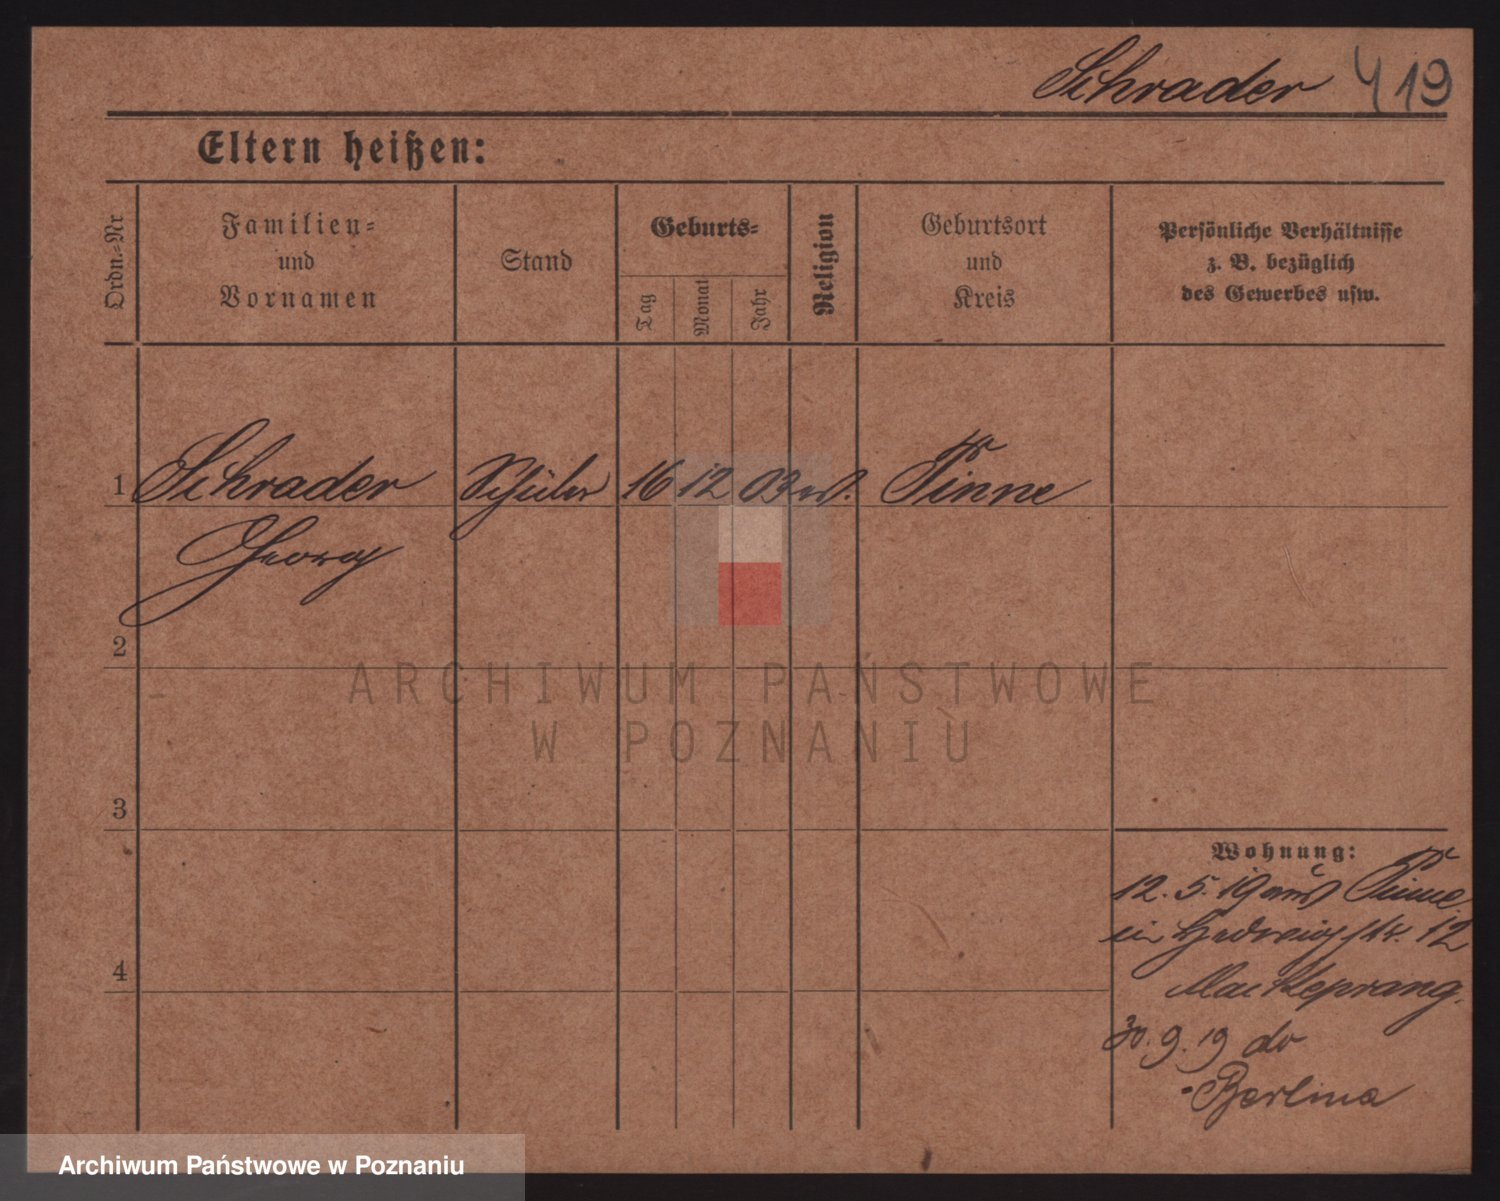 Schrader 419
Eltern heißen:
Ordn.-Nr
Familien-
und
Vornamen
Stand
Geburts-
Tag
Monat
Jahr
Religion
Geburtsort
und
Kreis
Persönliche Verhältnisse
z. B. bezüglich
des Gewerbes usw.
1 Schrader Schüler 16 12 03 ev. Pinne
Georg
2
ARCHIWUM PAŃSTWOWE
W POZNANIU
3
Wohnung:
12. 5. 19 aus Pinne
in Hedwigstr. 12
4
30. 9. 19 do
Berlina
Archiwum Państwowe w Poznaniu